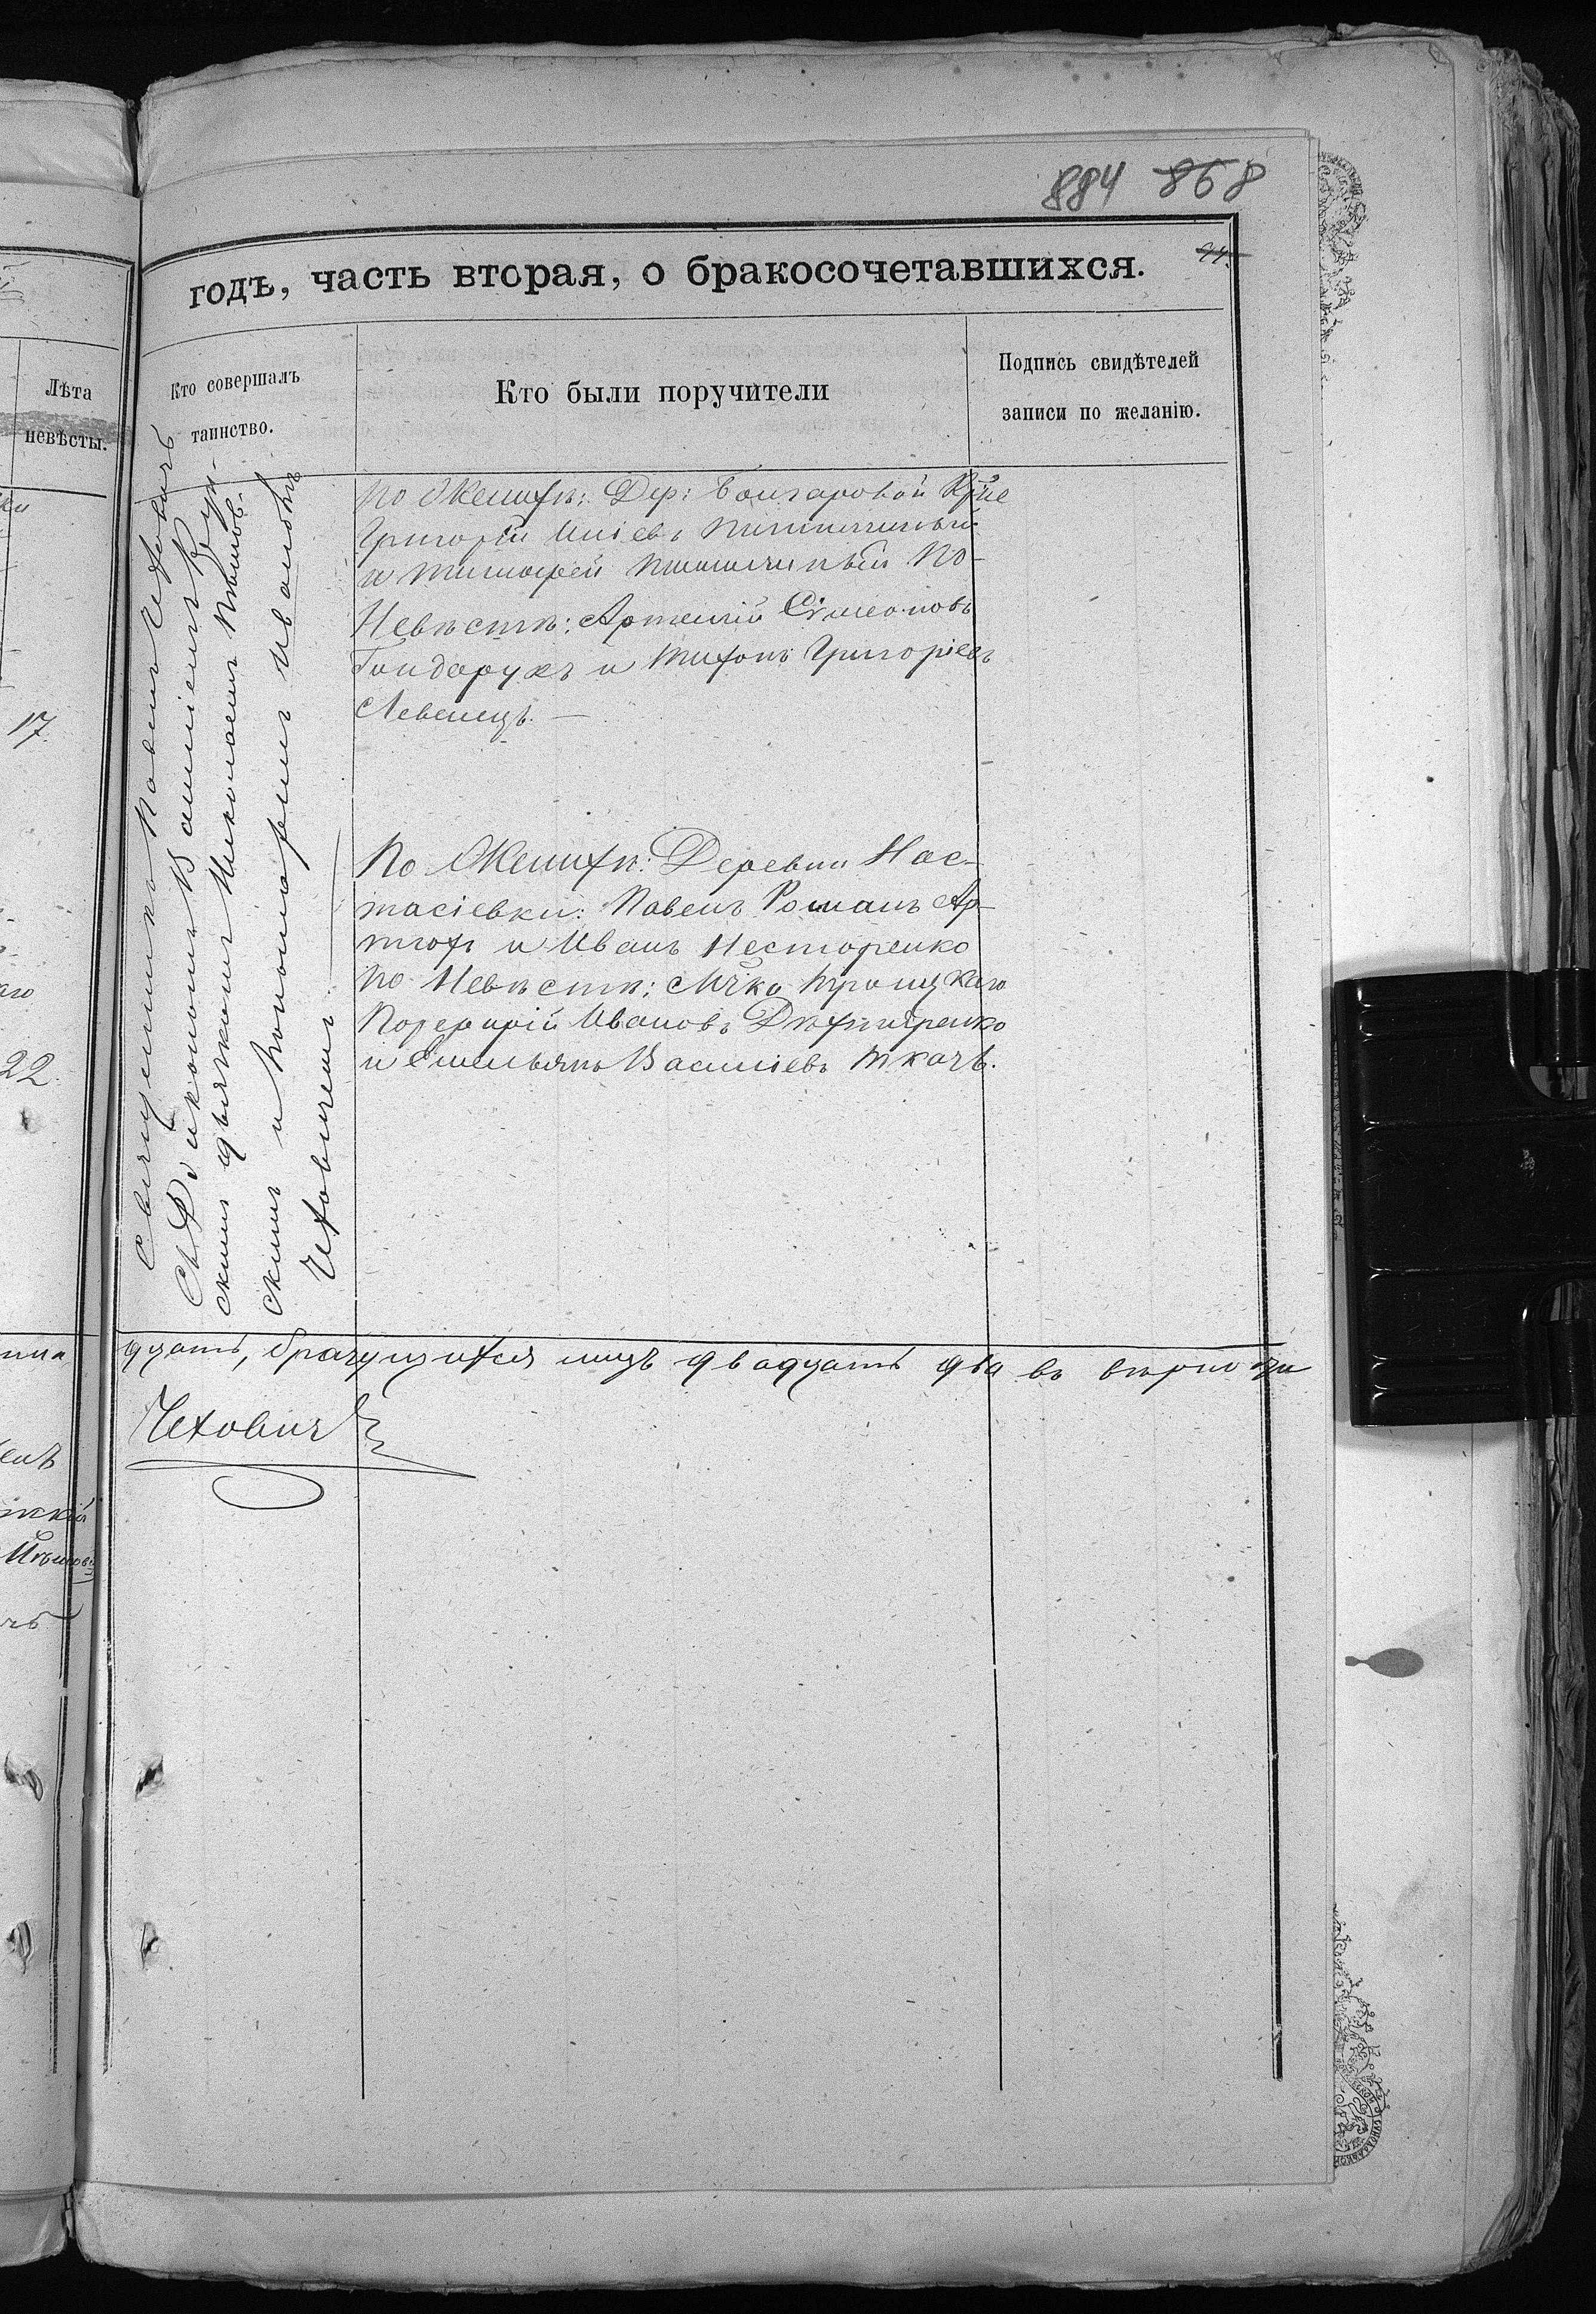 884 868
годъ, часть вторая, о бракосочетавшихся.
Лѣта
невѣсты.
Кто совершалъ
таинство.
Кто были поручители
Подпись свидѣтелей
записи по желанію.
17.
22.
Священникъ Павелъ Чеховичъ
съ Діакономъ Василіемъ
скимъ дьячкомъ Николаемъ
скимъ и Пономаремъ
Чеховичемъ
По Женихѣ: Дер:
Григорій
и Тимофей По
Невѣстѣ: Артемій Сімеоновъ
Гондарукъ и Тихонъ Григоріевъ
Левенецъ. —
По Женихѣ: Деревни Нас-
тасіевки: Павелъ Романъ Ар-
тюхъ и Иванъ Несторенко
По Невѣстѣ: Мѣчка Троицкаго
Порфирій Ивановъ
и Емельянъ Василіевъ Ткачъ.
дцать, брачущихся лицъ двадцать два вѣрно
Чеховичъ